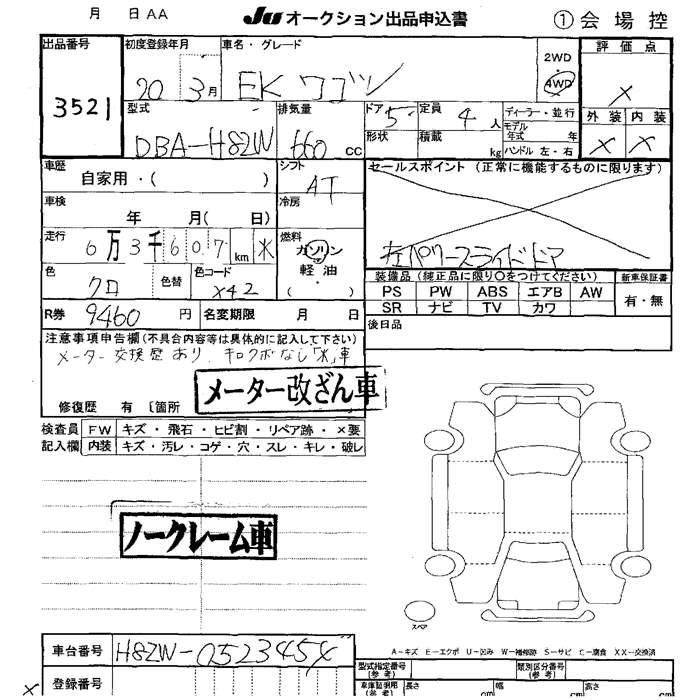 月 日 AA JU オークション出品申込書 ① 会場控
出品番号 初度登録年月 車名・グレード 2WD 評価点
3521 20 3月 EK ワゴン 4WD ×
型式 排気量 ドア 定員 ディーラー・並行 外装 内装
DBA-H82W 660 CC 5 4人 モデル年式 年 × ×
形状 積載 kg ハンドル 左・右
車歴 シフト セールスポイント (正常に機能するものに限ります)
自家用・( ) AT
車検 冷房
年 月( 日) 左パワースライドドア
走行 6万3千607km ※ 燃料
ガソリン
軽油
・( )
色 クロ 色替 色コード X42
装備品 (純正品に限り○をつけてください) 新車保証書
PS PW ABS エアB AW 有・無
SR ナビ TV カワ
R券 9460円 名変期限 月 日 後日品
注意事項申告欄(不具合内容等は具体的に記入して下さい)
メーター交換歴あり、キロクボなし「※」車
メーター改ざん車
修復歴 有 〔箇所
検査員記入欄 FW キズ・飛石・ヒビ割・リペア跡・×要
内装 キズ・汚レ・コゲ・穴・スレ・キレ・破レ
ノークレーム車
スペア
A-キズ E-エクボ U-凹み W-補修跡 S-サビ C-腐食 XX-交換済
車台番号 H82W-0523454
型式指定番号(参考) 類別区分番号(参考)
× 登録番号 車庫証明用(参考) 長さ cm 幅 cm 高さ cm